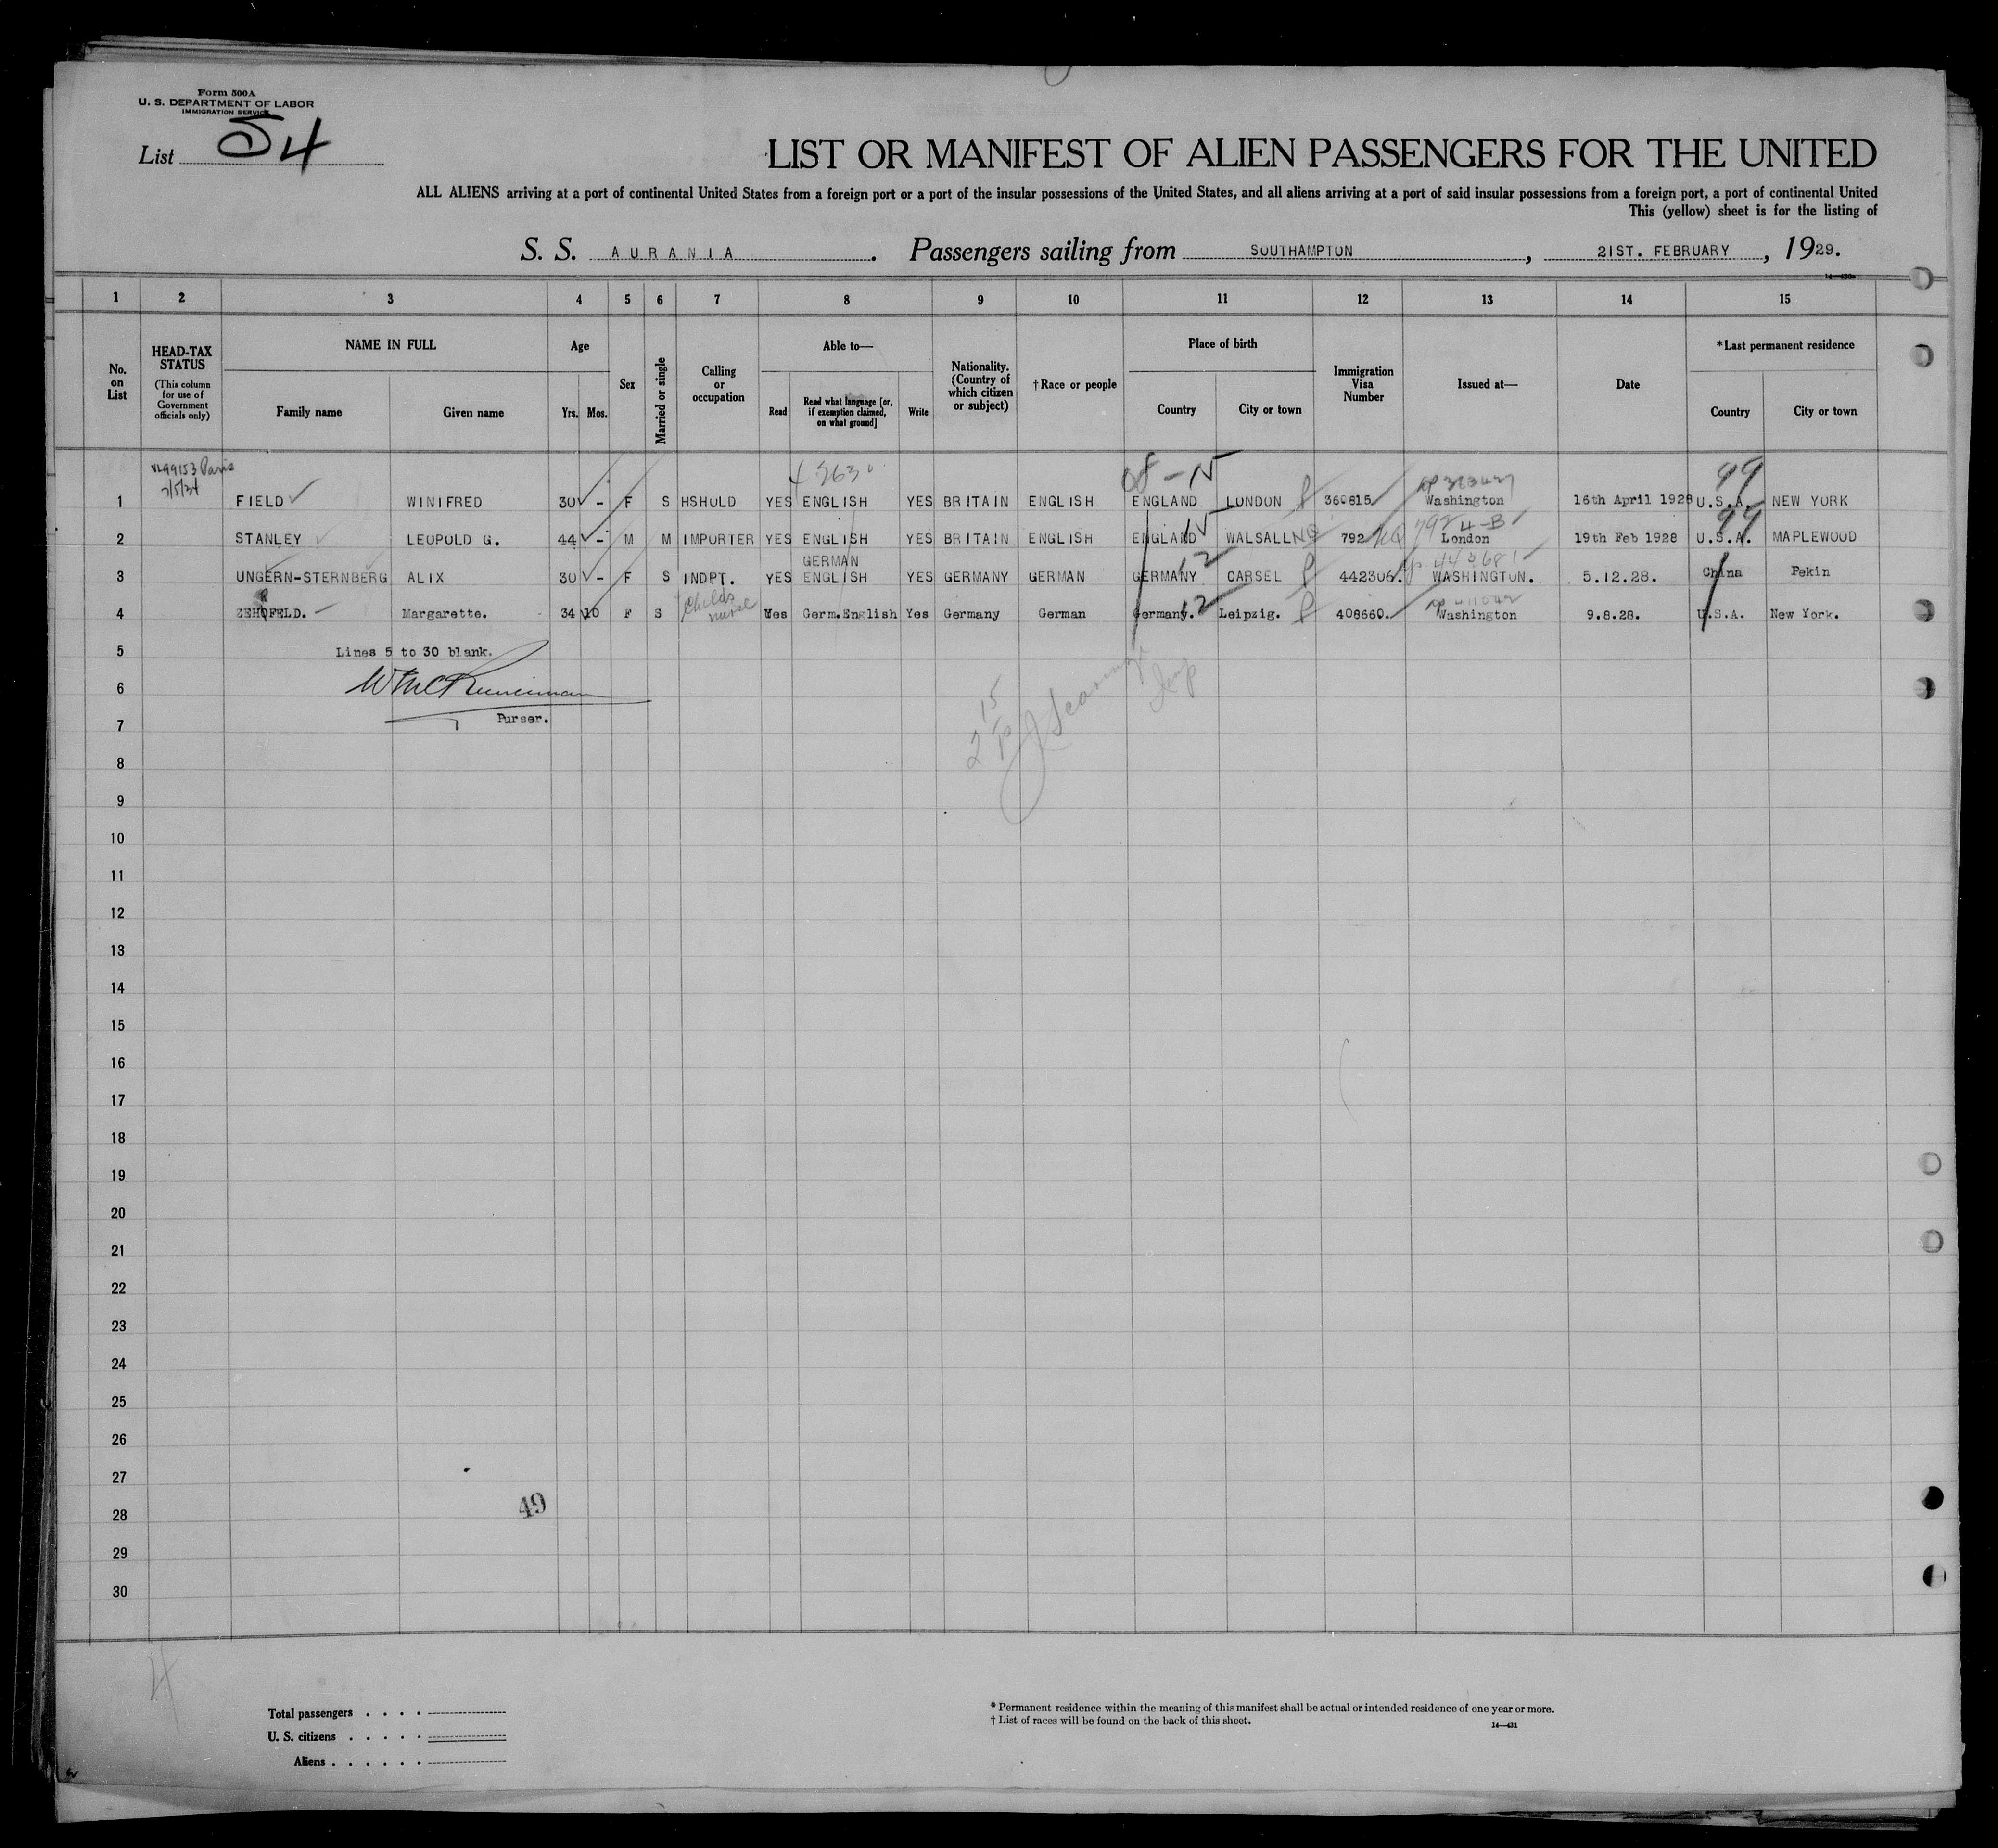 Form 500A
U. S. DEPARTMENT OF LABOR
IMMIGRATION SERVICE
List 54
LIST OR MANIFEST OF ALIEN PASSENGERS FOR THE UNITED
ALL ALIENS arriving at a port of continental United States from a foreign port or a port of the insular possessions of the United States, and all aliens arriving at a port of said insular possessions from a foreign port, a port of continental United
This (yellow) sheet is for the listing of
S. S. AURANIA. Passengers sailing from SOUTHAMPTON, 21ST. FEBRUARY, 1929.
1 2 3 4 5 6 7 8 9 10 11 12 13 14 15
No. on List
HEAD-TAX STATUS (This column for use of Government officials only)
NAME IN FULL
Family name Given name
Age
Yrs. Mos.
Sex
Married or single
Calling or occupation
Able to—
Read Read what language [or, if exemption claimed, on what ground] Write
Nationality. (Country of which citizen or subject)
†Race or people
Place of birth
Country City or town
Immigration Visa Number
Issued at—
Date
*Last permanent residence
Country City or town
99153 Paris
08-15 99
1 FIELD WINIFRED 30 - F S HSHOLD YES ENGLISH YES BRITAIN ENGLISH ENGLAND LONDON 360815 Washington 16th April 1928 U.S.A. NEW YORK
15 4-B 99
2 STANLEY LEOPOLD G. 44 - M M IMPORTER YES ENGLISH YES BRITAIN ENGLISH ENGLAND WALSALL NQ 792 NQ London 19th Feb 1928 U.S.A. MAPLEWOOD
GERMAN 12
3 UNGERN-STERNBERG ALIX 30 - F S INDPT. YES ENGLISH YES GERMANY GERMAN GERMANY CARSEL 442306. WASHINGTON. 5.12.28. China Pekin
Childs nurse 12
4 ZEHRFELD. Margarette. 34 10 F S Yes Germ.English Yes Germany German Germany. Leipzig. 408660. Washington 9.8.28. U.S.A. New York.
5 Lines 5 to 30 blank.
6
7 Purser.
8
9
10
11
12
13
14
15
16
17
18
19
20
21
22
23
24
25
26
27
28 49
29
30
4
Total passengers . . . .
U. S. citizens . . . . .
Aliens . . . . . .
* Permanent residence within the meaning of this manifest shall be actual or intended residence of one year or more.
† List of races will be found on the back of this sheet.
14—431